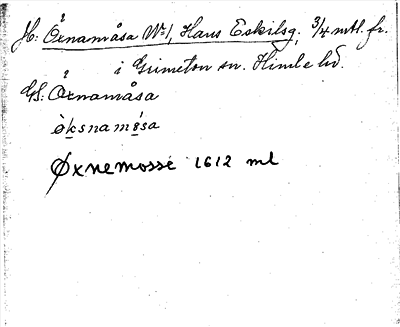 Jb: Öxnamåsa Nº 1, Hans Eskilsg. 3/4 mtl. fr.
i Grimeton sn. Himle hd.
GS: Öxnamåsa
òksnamåsa
Øxnemosse 1612 ml